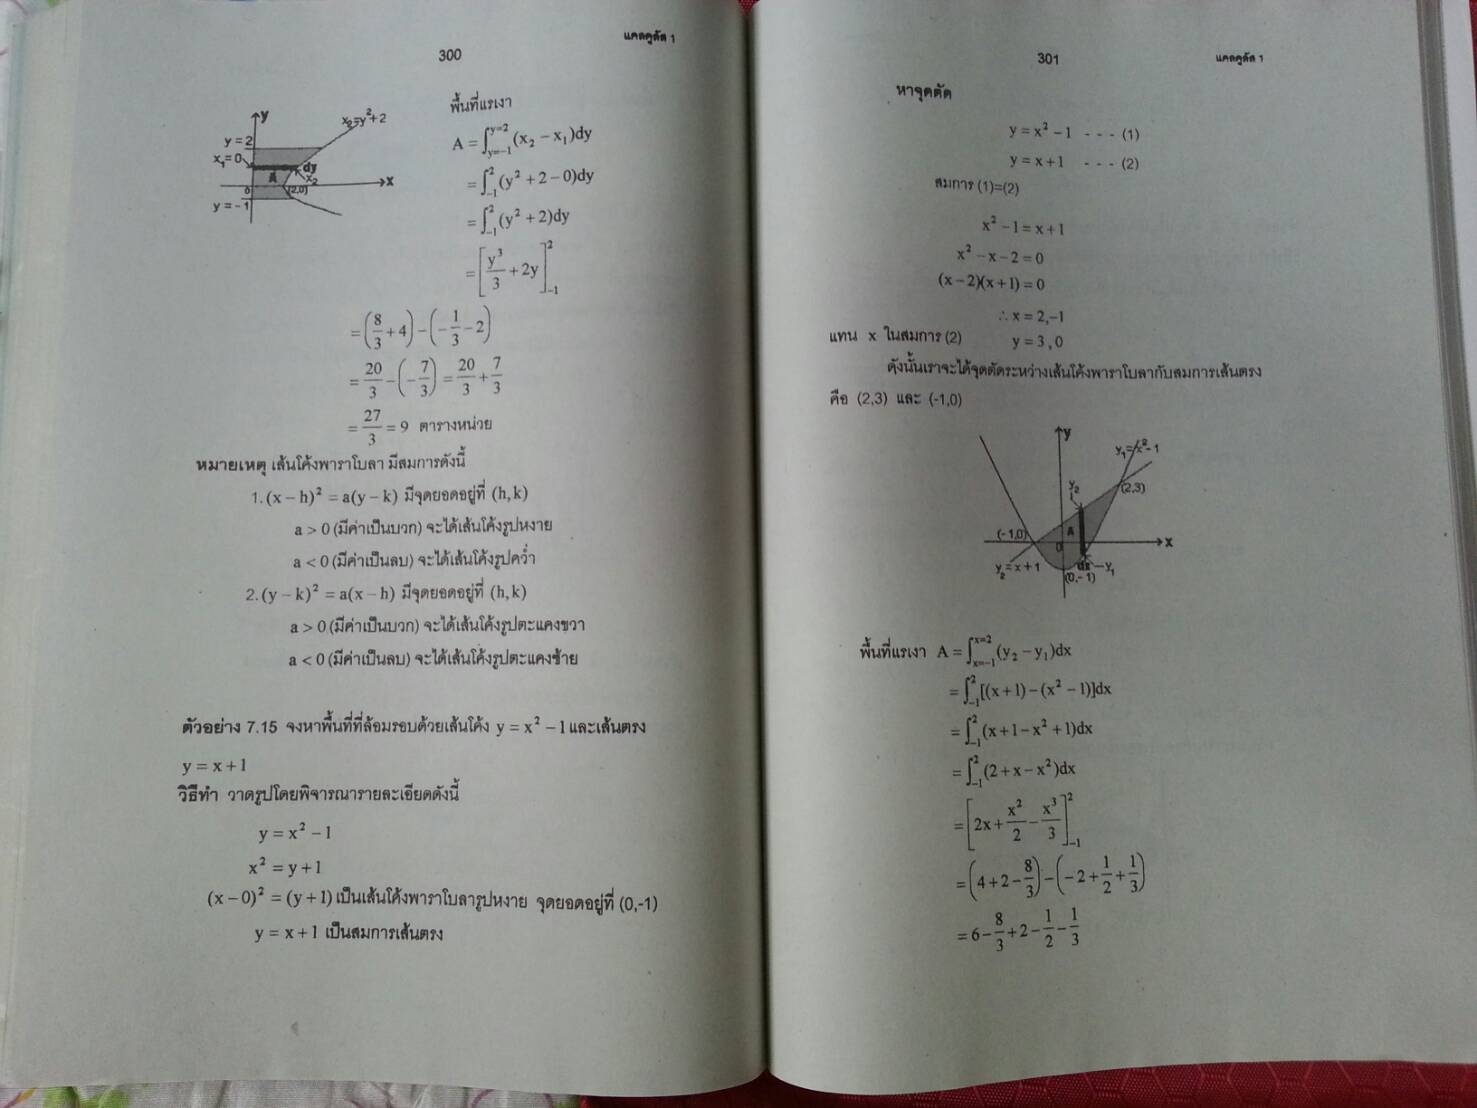 300
แคลคูลัส 1
y
x₂=y²+2
y = 2
x₁ = 0
dy
A
x₂
x
0
(2,0)
y = - 1
พื้นที่แรเงา
A = ∫_{y=-1}^{y=2} (x₂ − x₁)dy
= ∫_{-1}^{2} (y² + 2 − 0)dy
= ∫_{-1}^{2} (y² + 2)dy
= [y³/3 + 2y]_{-1}^{2}
= (8/3 + 4) − (−1/3 − 2)
= 20/3 − (−7/3) = 20/3 + 7/3
= 27/3 = 9 ตารางหน่วย
หมายเหตุ เส้นโค้งพาราโบลา มีสมการดังนี้
1. (x − h)² = a(y − k) มีจุดยอดอยู่ที่ (h,k)
a > 0 (มีค่าเป็นบวก) จะได้เส้นโค้งรูปหงาย
a < 0 (มีค่าเป็นลบ) จะได้เส้นโค้งรูปคว่ำ
2. (y − k)² = a(x − h) มีจุดยอดอยู่ที่ (h,k)
a > 0 (มีค่าเป็นบวก) จะได้เส้นโค้งรูปตะแคงขวา
a < 0 (มีค่าเป็นลบ) จะได้เส้นโค้งรูปตะแคงซ้าย
ตัวอย่าง 7.15 จงหาพื้นที่ที่ล้อมรอบด้วยเส้นโค้ง y = x² − 1 และเส้นตรง
y = x + 1
วิธีทำ วาดรูปโดยพิจารณารายละเอียดดังนี้
y = x² − 1
x² = y + 1
(x − 0)² = (y + 1) เป็นเส้นโค้งพาราโบลารูปหงาย จุดยอดอยู่ที่ (0,-1)
y = x + 1 เป็นสมการเส้นตรง
301
แคลคูลัส 1
หาจุดตัด
y = x² − 1 - - - (1)
y = x + 1 - - - (2)
สมการ (1)=(2)
x² − 1 = x + 1
x² − x − 2 = 0
(x − 2)(x + 1) = 0
∴ x = 2, −1
แทน x ในสมการ (2) y = 3 , 0
ดังนั้นเราจะได้จุดตัดระหว่างเส้นโค้งพาราโบลากับสมการเส้นตรง
คือ (2,3) และ (-1,0)
y
y₁ = x² - 1
y₂
(2,3)
(- 1,0)
A
0
x
y₂ = x + 1
dx
y₁
(0,- 1)
พื้นที่แรเงา A = ∫_{x=-1}^{x=2} (y₂ − y₁)dx
= ∫_{-1}^{2} [(x + 1) − (x² − 1)]dx
= ∫_{-1}^{2} (x + 1 − x² + 1)dx
= ∫_{-1}^{2} (2 + x − x²)dx
= [2x + x²/2 − x³/3]_{-1}^{2}
= (4 + 2 − 8/3) − (−2 + 1/2 + 1/3)
= 6 − 8/3 + 2 − 1/2 − 1/3